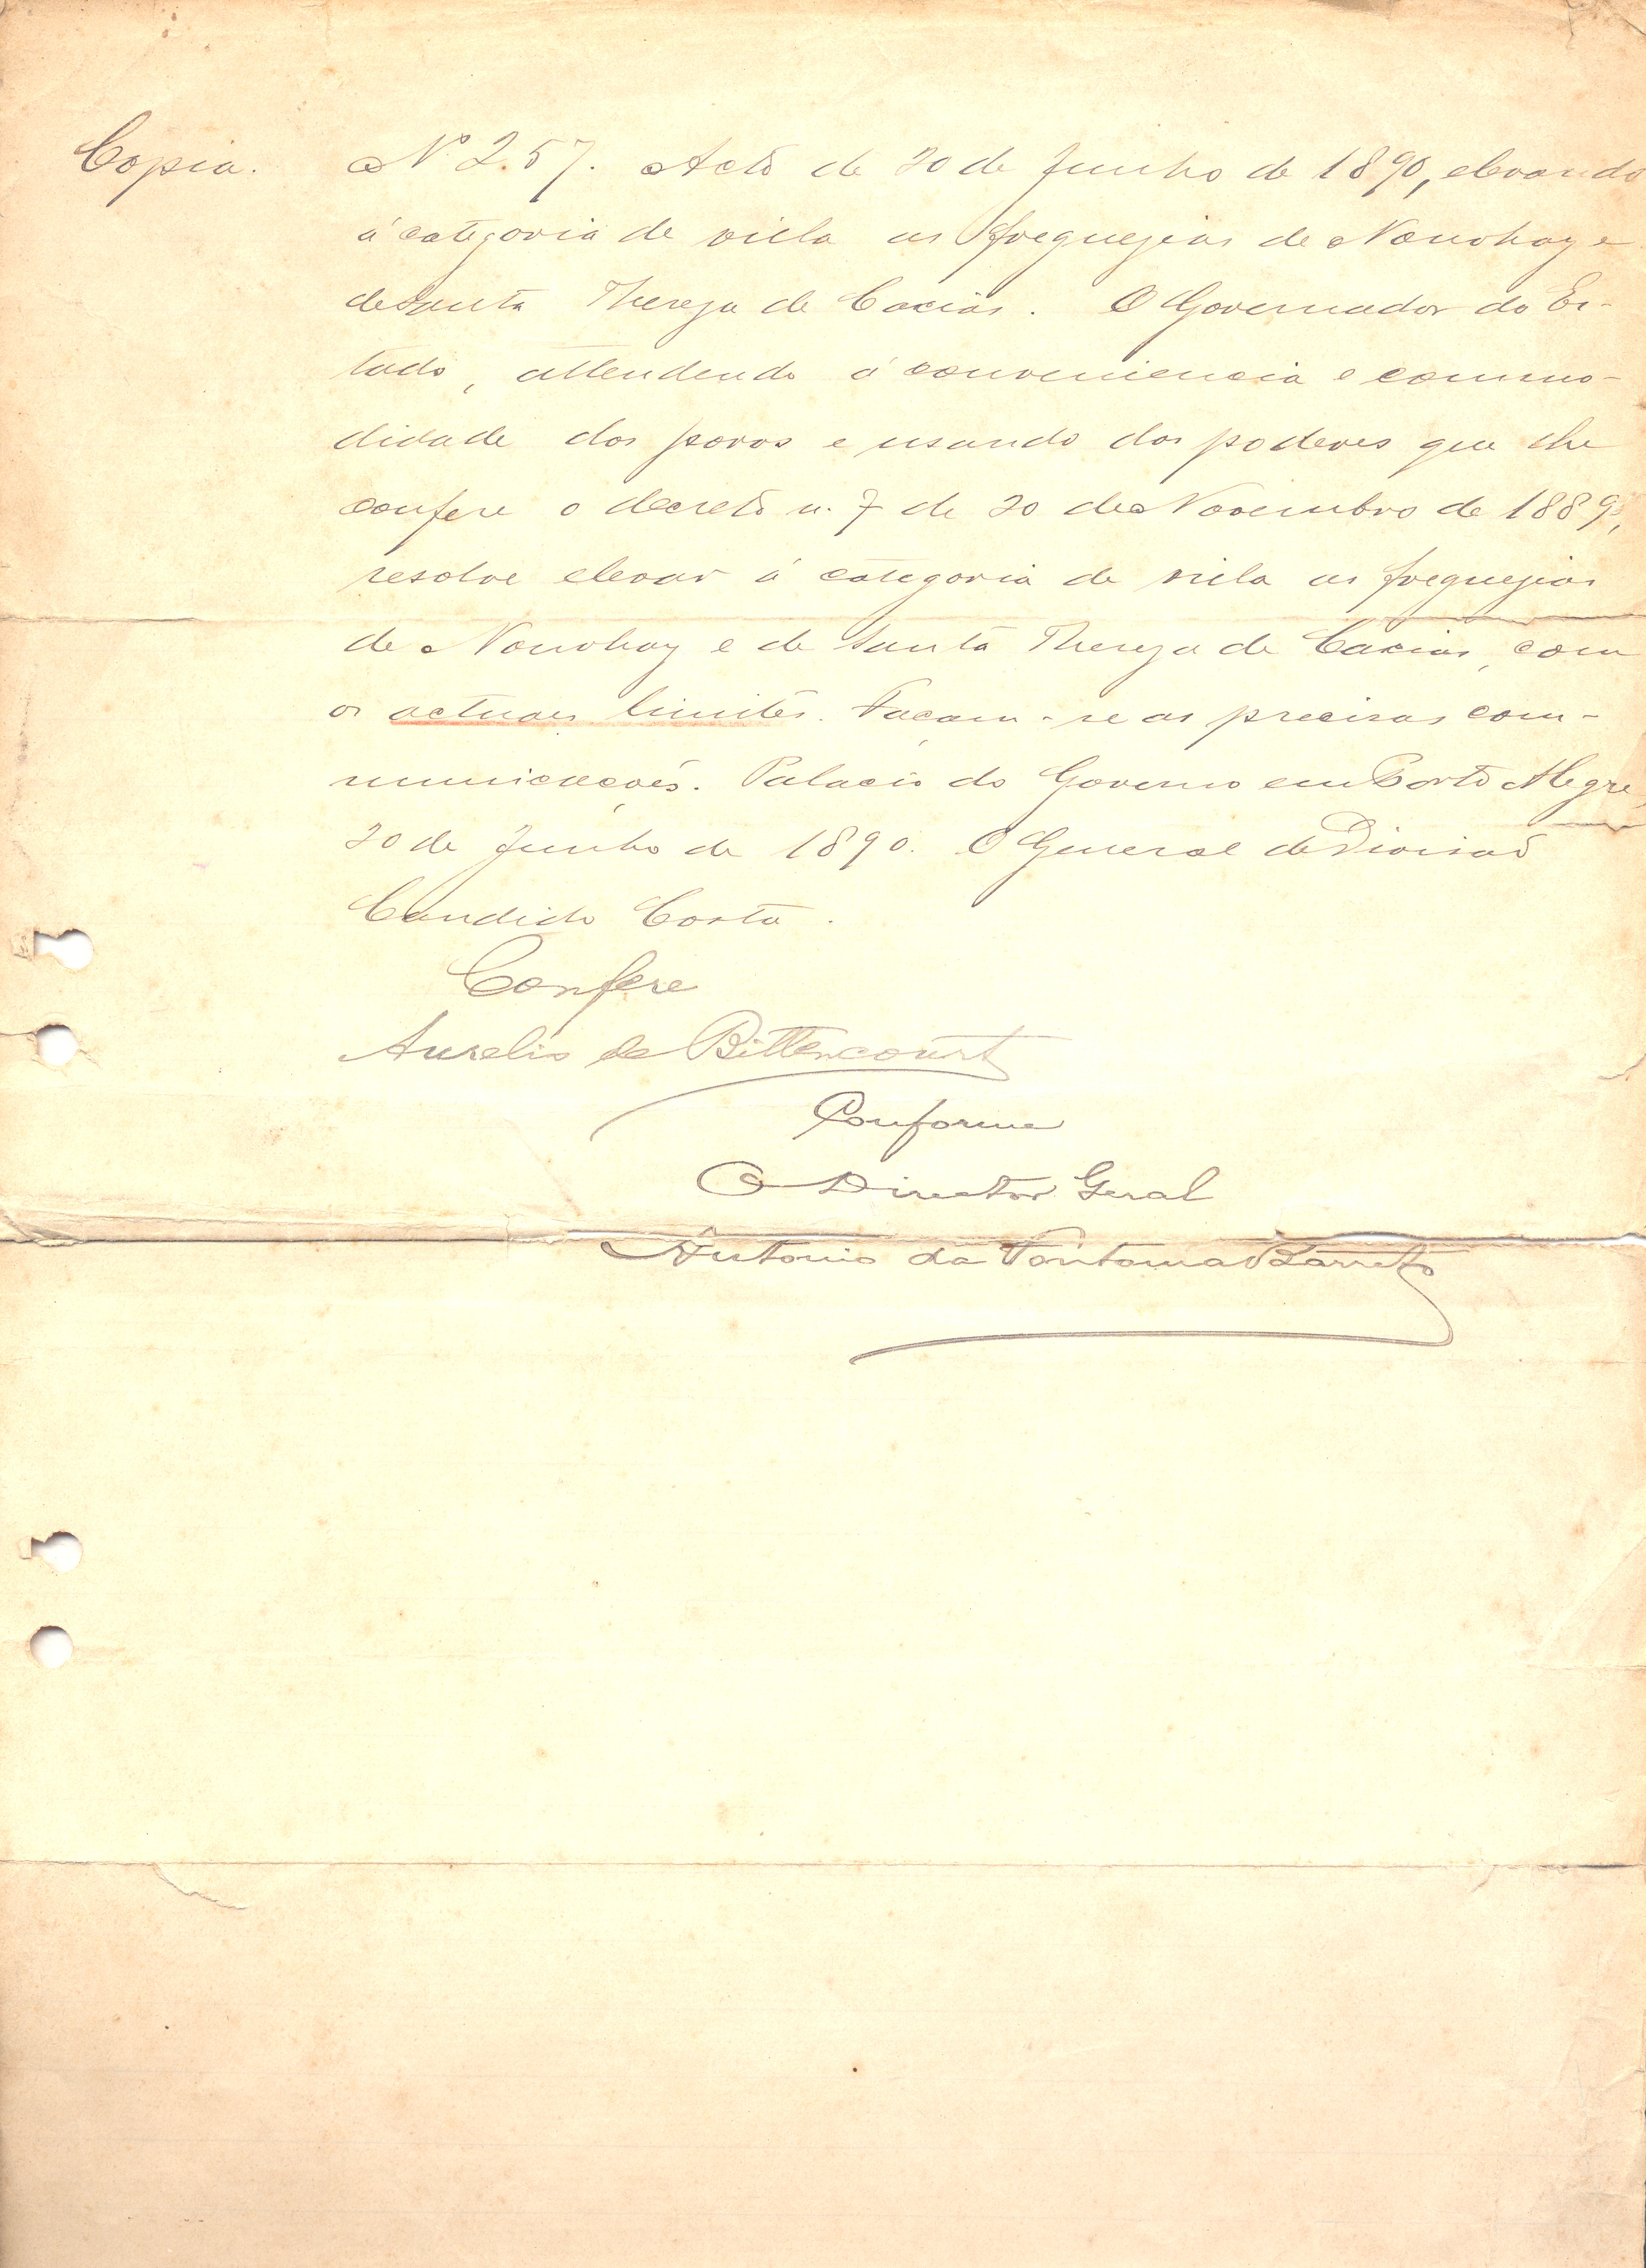 Copia. Nº 257. Acto de 20 de Junho de 1890, elevando
á categoria de villa as freguezias de Nonohay e
de Santa Thereza de Caxias. O Governador do Es-
tado, attendendo á conveniencia e commo-
didade dos povos e usando dos poderes que lhe
confere o decreto n. 7 de 20 de Novembro de 1889,
resolve elevar á categoria de villa as freguezias
de Nonohay e de Santa Thereza de Caxias, com
os actuaes limites. Façam-se as precisas com-
municações. Palacio do Governo em Porto Alegre,
20 de Junho de 1890. O General de Divisão
Candido Costa.
Confere
Aurelio de Bittencourt
Conforme
O Director Geral
Antonio da Fontoura Barreto